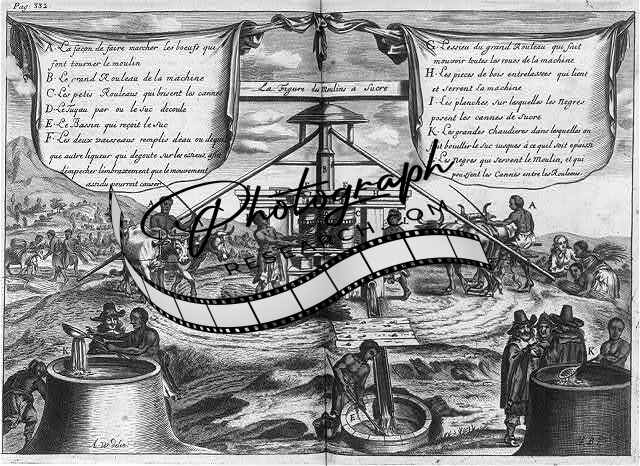 Pag. 332
A·La façon de faire marcher les boeufs qui
font tourner le moulin
B·Le grand Rouleau de la machine
C·Les petis Rouleaux qui brisent les cannes
D·Le tuyau par ou le suc decoule
E·Le Bassin qui reçoit le suc
F·Les deux vaisseaux remplis d'eau ou
que autre liqueur qui degoute sur les
d'empécher l'embrazement que le mouvement
assidu pourroit causer
La Figure du Moulins à Sucre
G·L'essieu du grand Rouleau qui fait
mouvoir toutes les roues de la machine
H·Les pieces de bois entrelassees qui lient
et serrent la machine
I·Les planches sur lesquelles les Negres
posent les cannes de sucre
K·Les grandes Chaudieres dans lesquelles on
fait bouillir le suc jusques à ce qu'il soit epaissi
Les Negres qui servent le Moulin, et qui
poussent les Cannes entre les Rouleaux
Photograph
RESEARCH.COM
B
A
A
K
E
K
A. W. delin.